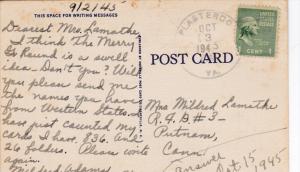 9/2/45
THIS SPACE FOR WRITING MESSAGES
Dearest Mrs. Lamathe
I think the Merry
Go Round is a swell
idea. Don't you? Will
you please send me
the names you have
from Western States. I
have just counted my
cards I have 836. And
26 folders. Please write
again.
Mildred Adams
POST CARD
OCT
3
1945
VA.
1
Mrs Mildred Lamathe
R.F.D #3-
Putnam,
Conn.
answer
Oct 15
1945